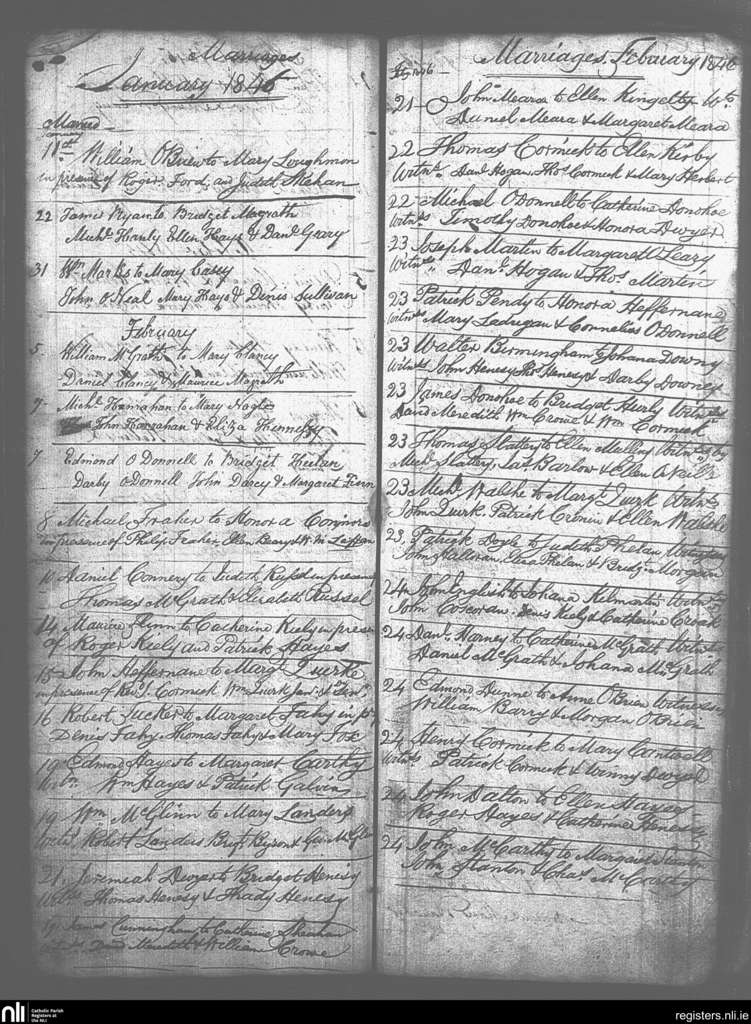 Marriages
January 1846
Married
11th William O'Brien to Mary Loughmon
in presence of Roger Ford, and Judith Shehan
22 James Ryan to Bridget Magrath
Michl. Hanly Ellen Hays & Danl. Geary
31 Wm. Marks to Mary Casey
John O'Neal Mary Hays & Denis Sullivan
February
5. William McGrath to Mary Clancy
Daniel Clancy & Maurice Magrath
7 Michl. Hanrahan to Mary Nagle
John Hanrahan & Eliza
7 Edmond O'Donnell to Bridget
Darby O'Donnell John Darcy & Margaret
8 Michael Fraher to Honora Connors
in presence of Philip Fraher, Ellen & Wm.
10 Daniel Connery to Judith Russel in presence
Thomas McGrath & Elizabeth Russel
14 Maurice Flynn to Catherine Kiely in presence
of Roger Kiely and Patrick Hayes
15 John Heffernane to Margt. Quirke
in presence of Revd. J. Cormick Wm. Quirk Senr. &
16 Robert Tucker to Margaret Fahy in
Denis Fahy Thomas Fahy & Mary Fox
19 Edmond Hayes to Margaret Carthy
Witn. Wm. Hayes & Patrick Galvin
19 Wm. McGlinn to Mary Landers
Witns. Robert Landers Bridgt. Byron & Geo.
21. Jeremiah Dwyer to Bridget Henesy
Witns. Thomas Henesy & Thady Henesy
James Cunningham to Catherine Shanahan
David Meredith & William Crowe
Marriages. Febuiary 1846
Feby. 1846
21 John Meara to Ellen Kingelty Wts.
Daniel Meara & Margaret Meara
22 Thomas Cormick to Ellen Kirby
Witns. Danl. Hogan, Thos. Cormick & Mary Herbert
22 Michael O'Donnell to Catharine Donohoe
Witns. Timothy Donohoe & Honora Dwyer
23 Joseph Martin to Margaret O'Leary
Witnes. " Danl. Hogan & Thos. Martin
23 Patrick Pendy to Honora Heffernane
Witns. Mary Ladrigan & Cornelius O'Donnell
23 Walter Birmingham to Johana Downy
Witns. John Henesy Thos. Henesy & Darby Downey
23 James Donohoe to Bridget Hurly
David Meredith Wm. Crowe & Wm. Cormick
23 Thomas Slattery to Ellen Mulliny
Michl. Slattery, Jas. Barlow & Ellen O'Neill
23 Michl. Walshe to Margt. Quirk Witns.
John Quirk Patrick Cronin & Ellen Walshe
23. Patrick Doyle to Judith Phelan
John Halloran, Eliza Phelan & Bridgt. Morgan
24 John English to Johana Kilmartin
John Corcoran. Denis Kiely & Catharine Croak
24 Danl. Harney to Catharine McGrath
Daniel McGrath & Johana McGrath
24 Edmond Dunne to Anne O'Brien Witnesses
William Barry & Morgan O'Brien
24 Henry Cormick to Mary Cantwell
Witns. Patrick Cormick & Winny Dwyer
24 John Dalton to Ellen Hayes
Roger Hayes & Catherine Henesy
24 John McCarthy to Margaret
John Stanton & Chas. McCarthy
nli
Catholic Parish
Registers at
the NLI
registers.nli.ie